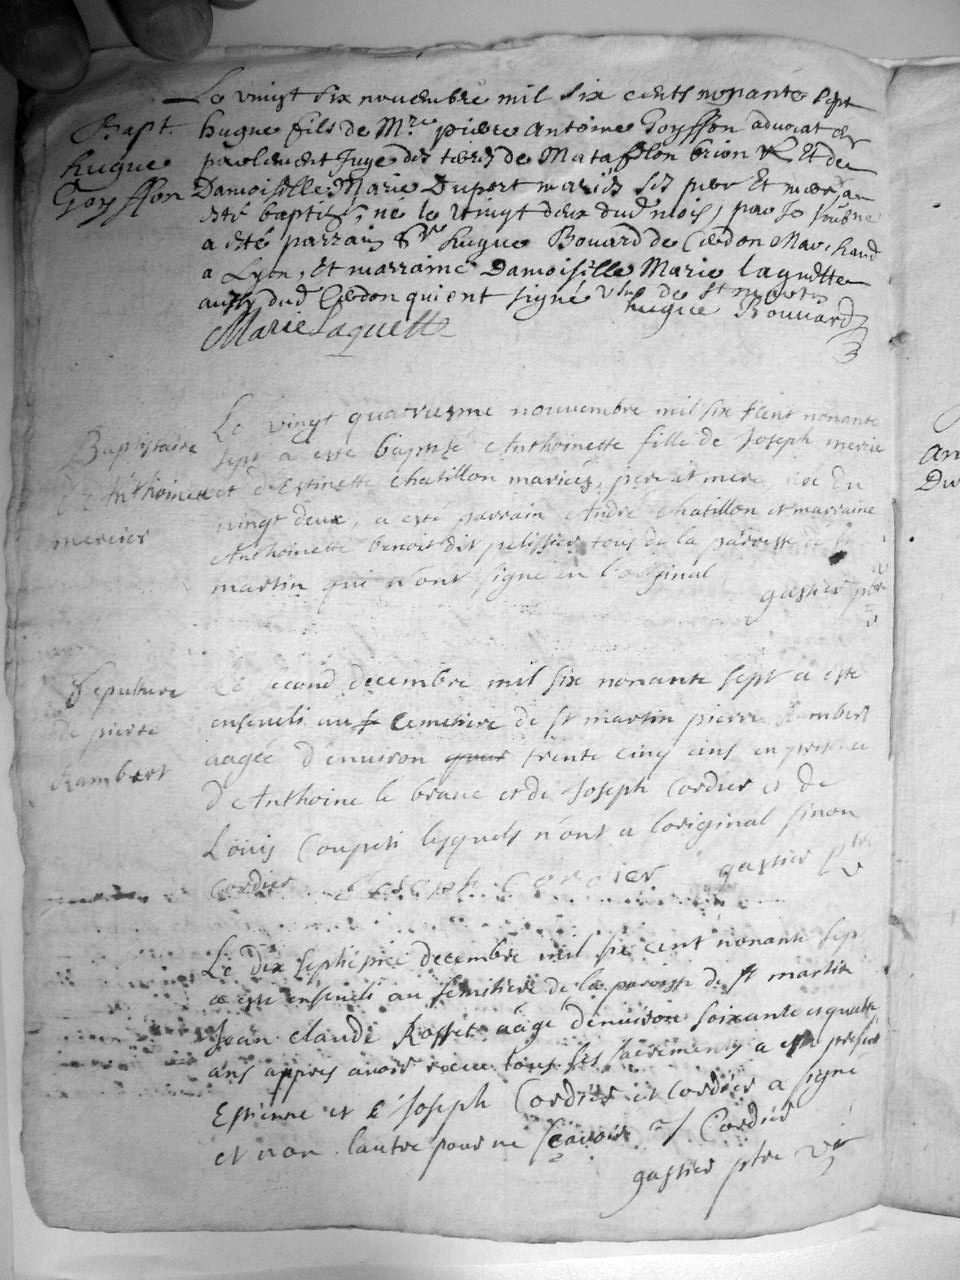 Le vingt six novembre mil six cents nonante sept
Bapt. hugue fils de Mre. pierre antoine Goyffon advocat en
hugue parlement Juge des terres de Matafflon brion & Et de
Goyffon Damoiselle Marie Duport mariés ses pere Et mere, a
esté baptizé, né le vingt deux dud. mois, par Je soubsne
a esté parrain Sr. hugue Bouard de Cerdon Marchand
a Lyon, Et marraine Damoiselle Marie laguette
aussy dud. Cerdon qui ont signé de St martin
hugue Bouuard
Marie Laguette
Le vingt quatriesme nouvembre mil six cent nonante
Baptistaire sept a esté baptizé Anthoinette fille de Joseph mercier
d'Anthoinette et d'Estinette chatillon mariés, pere et mere, née du
mercier vingt deux, a esté parrain André chatillon et marraine
Anthoinette benoit dit pelissier tous de la paroisse de St
martin qui n'ont signé en l'original
gastier ptre
Sepulture Le second decembre mil six nonante sept a esté
de pierre enseveli au cemetiere de St martin pierre Rambert
Rambert aagée d'environ trente cinq ans en presence
d'Anthoine le brave et de Joseph Cordier et de
Louis Coupeti lesquels n'ont a l'original sinon
Cordier Joseph Cordier gastier ptre
Le dix septieme decembre mil six cent nonante sept
a esté enseveli au semitiere de la paroisse de St martin
Jean claude Roffet aagé d'environ soixante et quatre
ans appres avoir receu tous ses sacrements a esté present
Estienne et Joseph Cordier et Cordier a signé
et non l'autre pour ne sçavoir Cordier
gastier ptre
An
Du